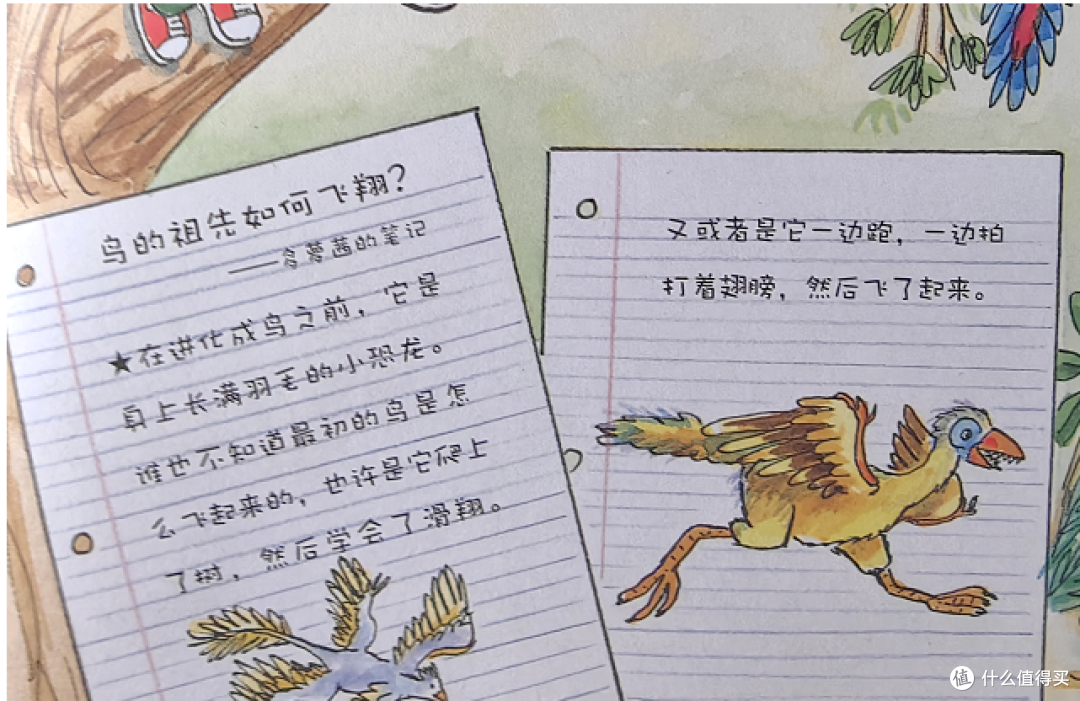 鸟的祖先如何飞翔？
——多萝茜的笔记
★在进化成鸟之前，它是
身上长满羽毛的小恐龙。
谁也不知道最初的鸟是怎
么飞起来的，也许是它爬上
了树，然后学会了滑翔。
又或者是它一边跑，一边拍
打着翅膀，然后飞了起来。
值 什么值得买